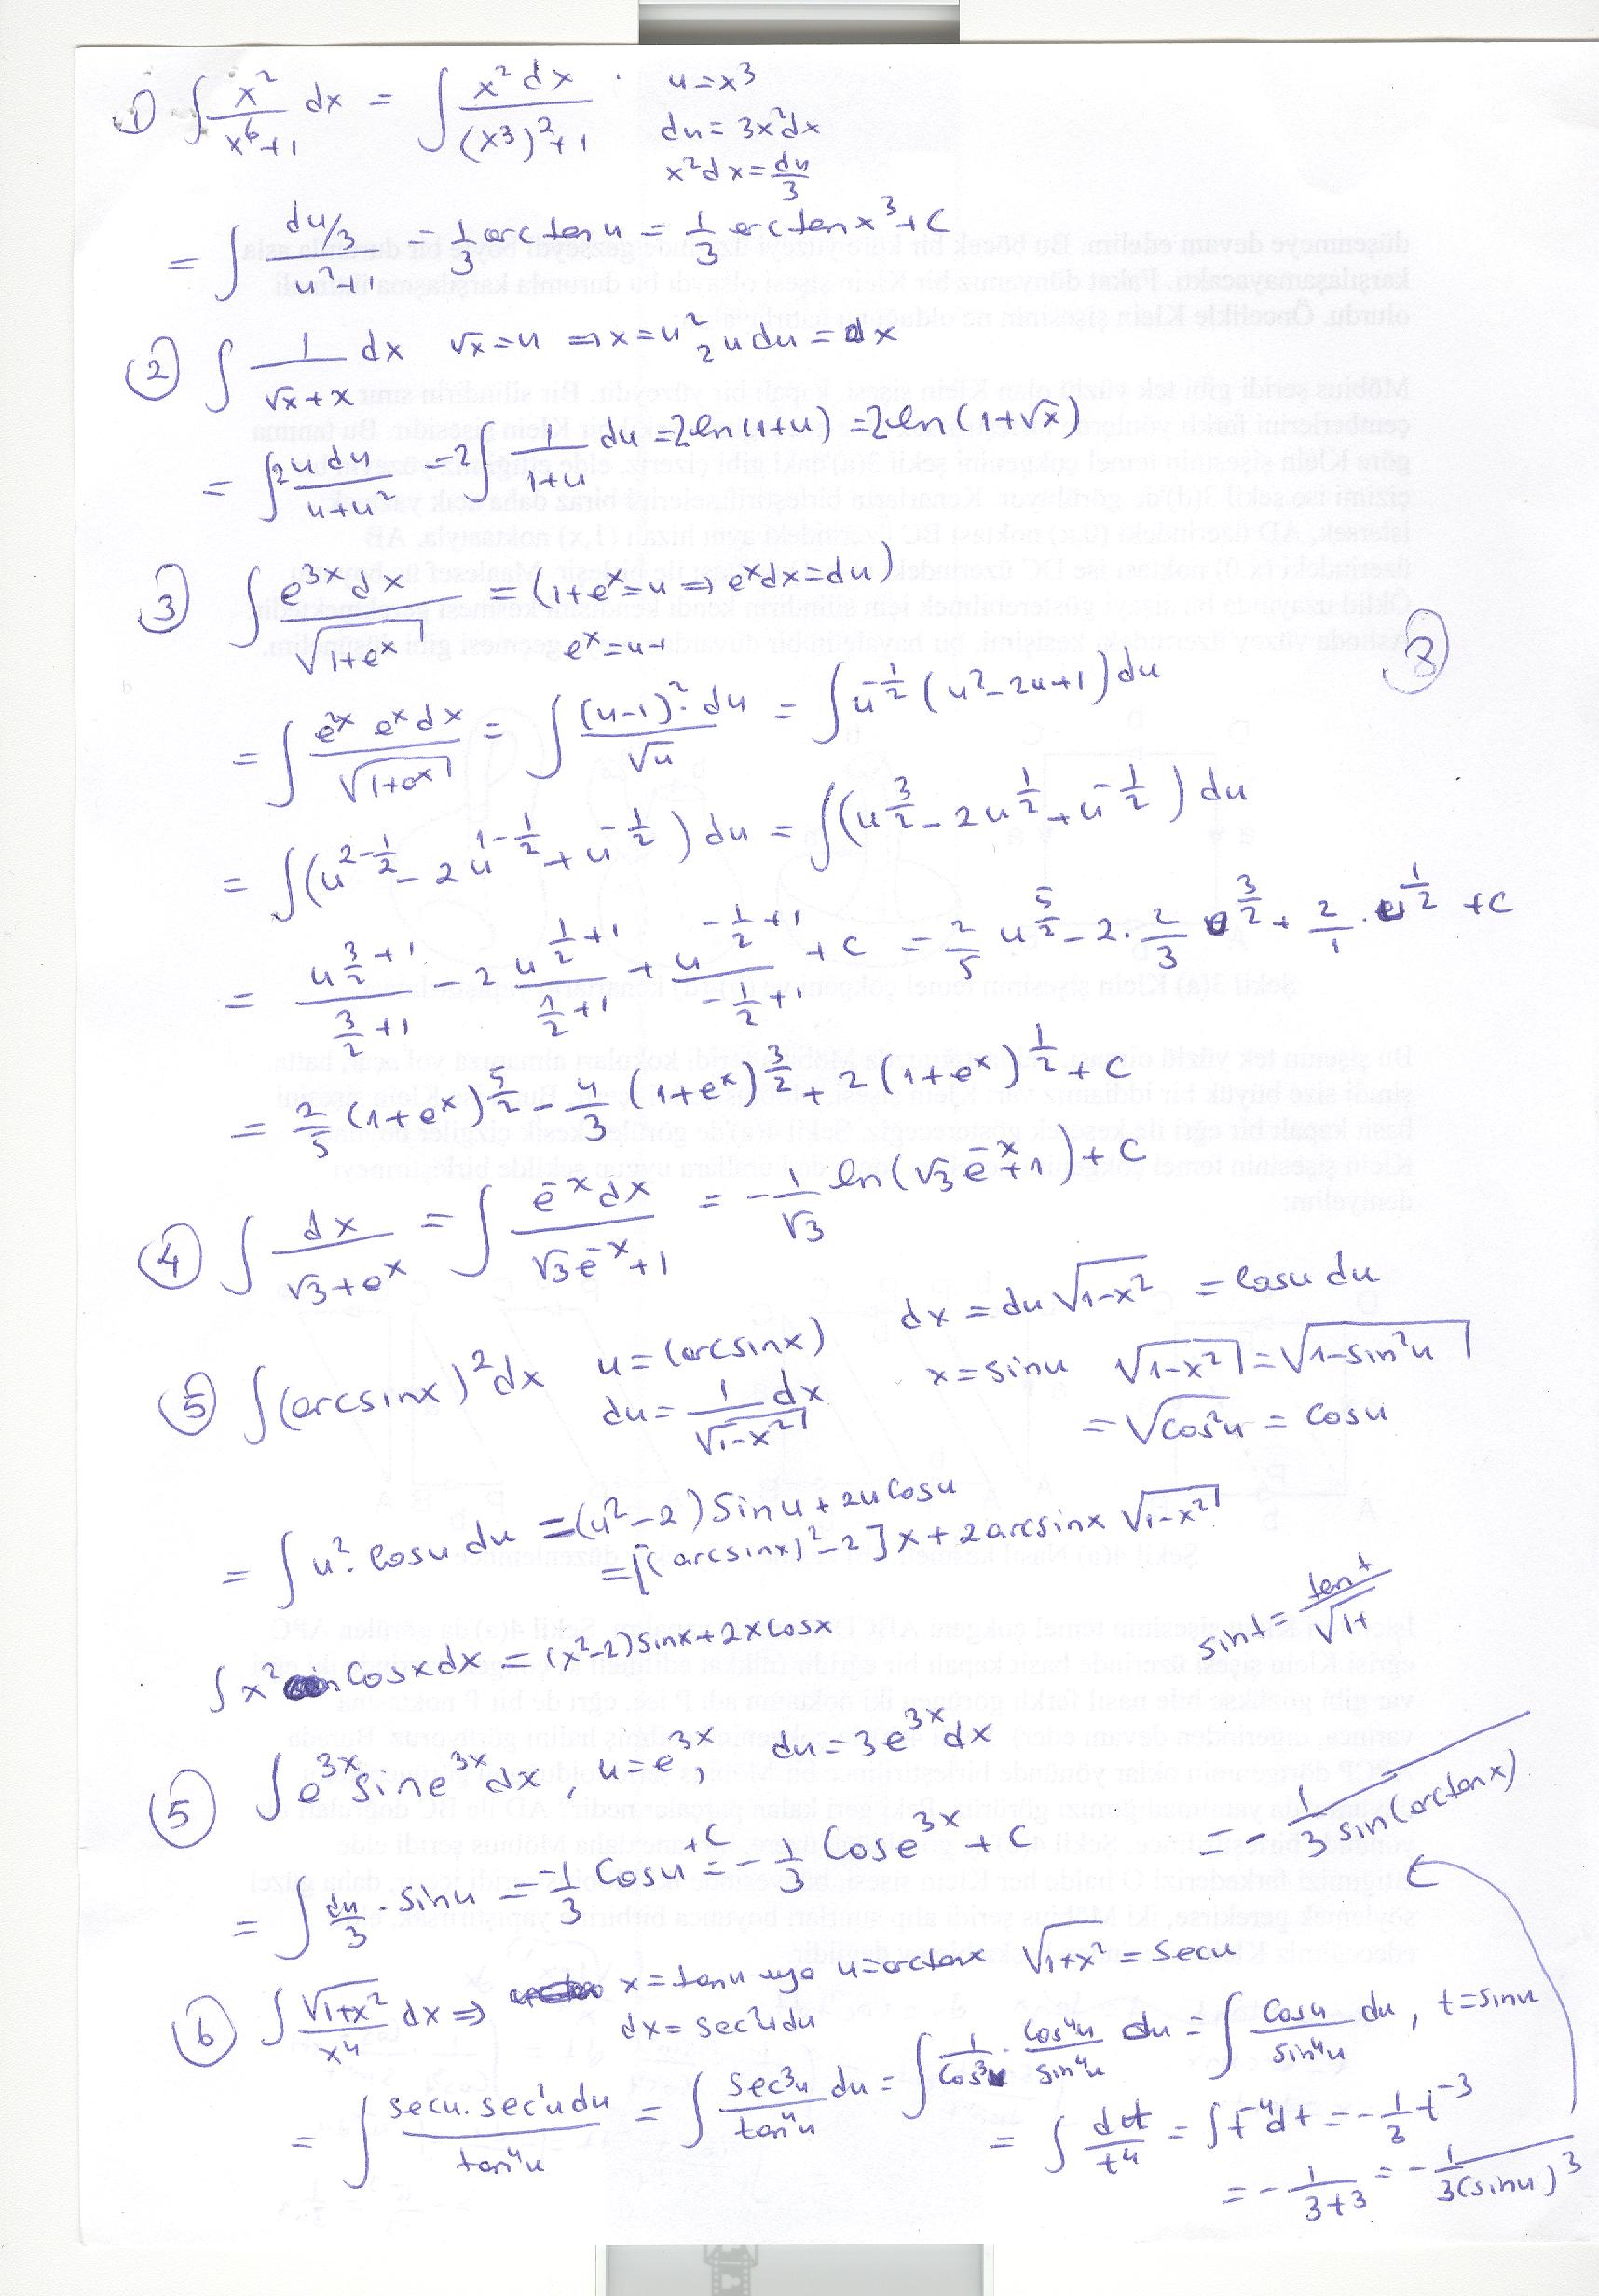 1) ∫ x²/(x⁶+1) dx = ∫ x²dx/((x³)²+1) u=x³
du=3x²dx
x²dx=du/3
= ∫ (du/3)/(u²+1) = 1/3 arctan u = 1/3 arctan x³+C
2) ∫ 1/(√x+x) dx √x=u ⇒ x=u² 2udu=dx
= ∫ 2udu/(u+u²) = 2∫ 1/(1+u) du = 2ln(1+u) = 2ln(1+√x)
3) ∫ e^(3x) dx/√(1+e^x) = (1+e^x=u ⇒ e^x dx=du)
e^x=u-1
3
= ∫ e^(2x) e^x dx/√(1+e^x) = ∫ (u-1)²·du/√u = ∫ u^(-1/2) (u²-2u+1)du
= ∫ (u^(2-1/2) - 2u^(1-1/2) + u^(-1/2)) du = ∫ (u^(3/2) - 2u^(1/2) + u^(-1/2)) du
= u^(3/2+1)/(3/2+1) - 2 u^(1/2+1)/(1/2+1) + u^(-1/2+1)/(-1/2+1) + C = 2/5 u^(5/2) - 2·2/3 u^(3/2) + 2/1·u^(1/2) + C
= 2/5 (1+e^x)^(5/2) - 4/3 (1+e^x)^(3/2) + 2(1+e^x)^(1/2) + C
4) ∫ dx/(√3+e^x) = ∫ e^(-x)dx/(√3e^(-x)+1) = -1/√3 ln(√3e^(-x)+1)+C
5) ∫(arcsinx)²dx u=(arcsinx) dx=du√(1-x²) = cosu du
du = 1/√(1-x²) dx x=sinu √(1-x²)=√(1-sin²u)
=√(cos²u) = cosu
= ∫u²·cosu du =(u²-2)Sinu+2uCosu
=[(arcsinx)²-2]x+2arcsinx √(1-x²)
sint = tant/√(1+
∫x² Cosxdx = (x²-2)sinx+2xCosx
5) ∫e^(3x) sin e^(3x) dx, u=e^(3x), du=3e^(3x)dx
= ∫ du/3 · sinu = -1/3 Cosu+C = -1/3 Cose^(3x) + C
= - 1/(3 sin(arctanx))
6) ∫ √(1+x²)/x⁴ dx ⇒ x=tanu veya u=arctanx √(1+x²) = secu
dx=sec²udu
= ∫ secu·sec²udu/tan⁴u = ∫ sec³u/tan⁴u du = ∫ 1/cos³u · cos⁴u/sin⁴u du = ∫ cosu/sin⁴u du, t=sinu
= ∫ dt/t⁴ = ∫t⁻⁴dt = -1/3 t⁻³
= - 1/(3t³) = - 1/(3(sinu)³)